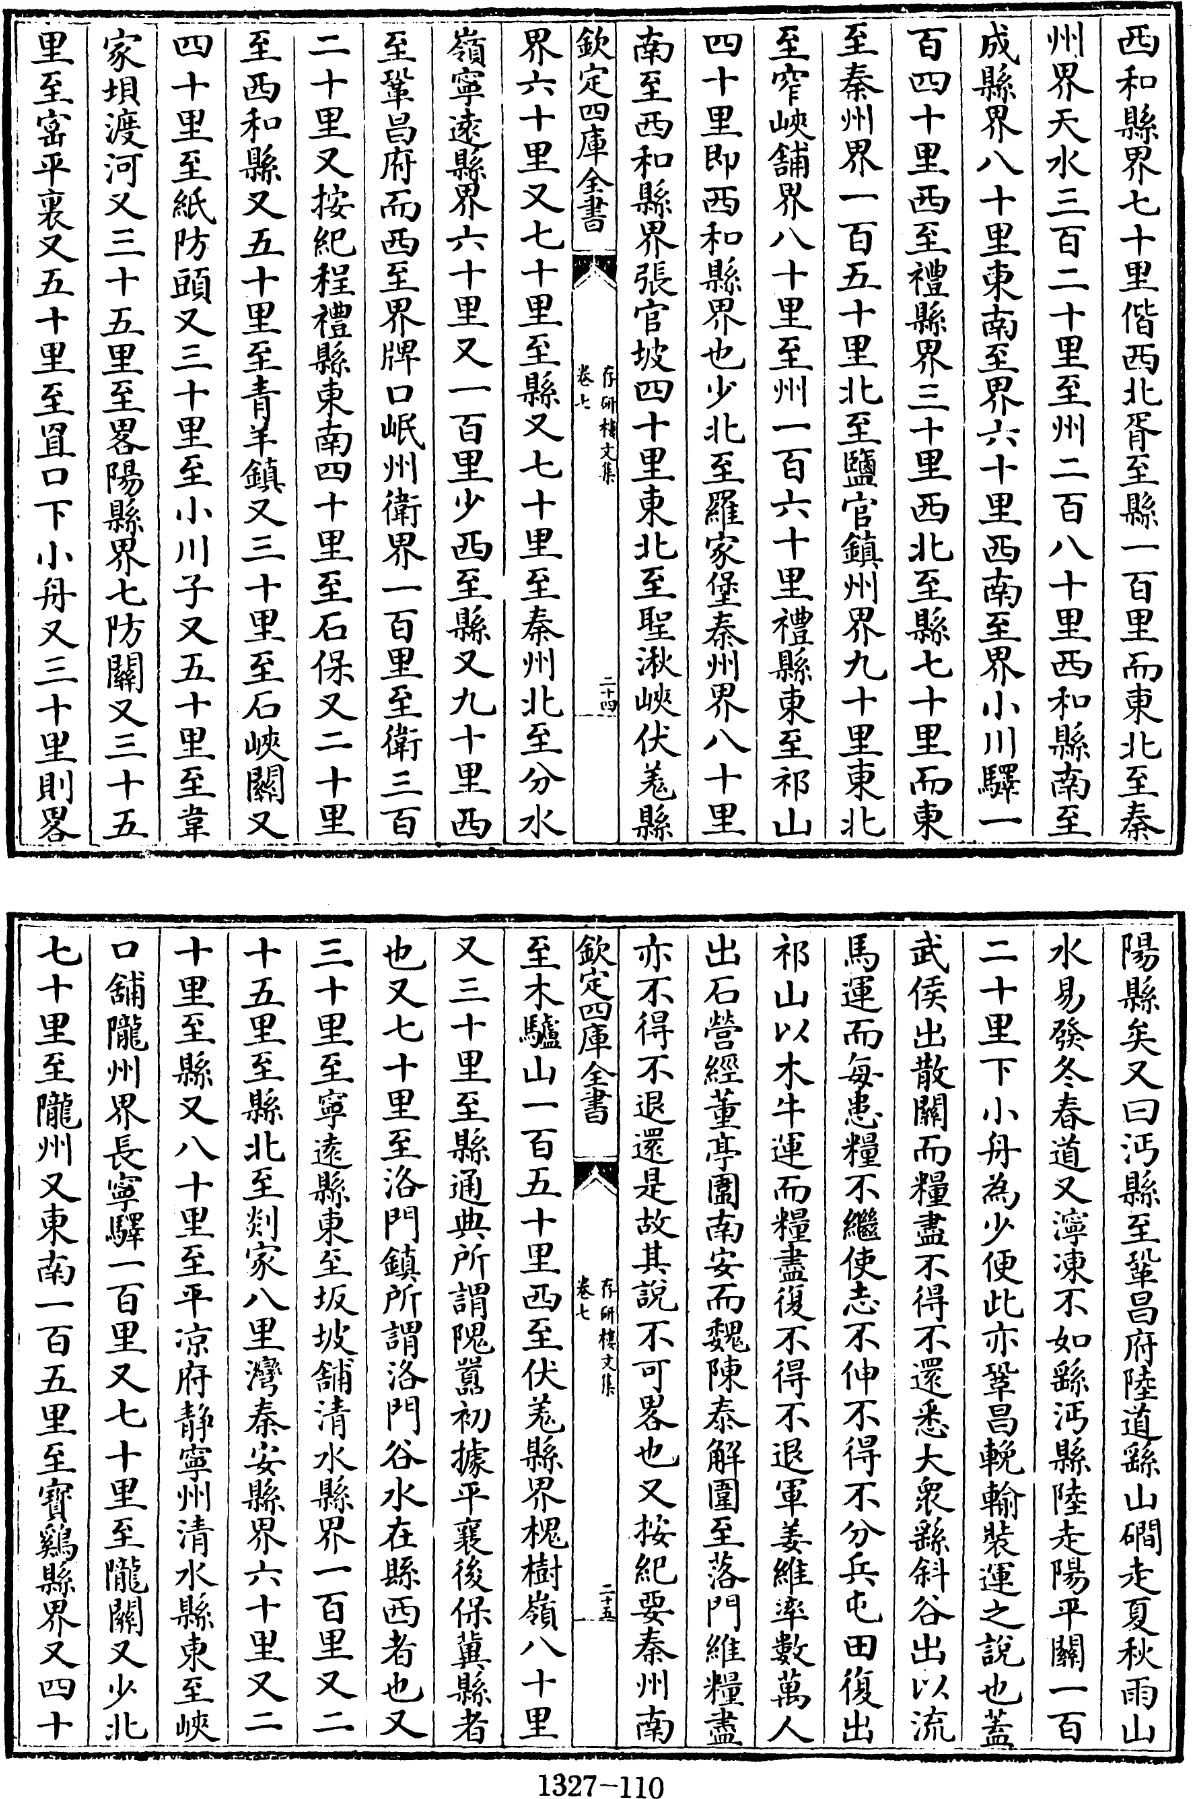 西和縣界七十里偕西北胥至縣一百里而東北至秦
州界天水三百二十里至州二百八十里西和縣南至
成縣界八十里東南至界六十里西南至界小川驛一
百四十里西至禮縣界三十里西北至縣七十里而東
至秦州界一百五十里北至鹽官鎮州界九十里東北
至窄峽舖界八十里至州一百六十里禮縣東至祁山
四十里即西和縣界也少北至羅家堡秦州界八十里
南至西和縣界張官坡四十里東北至聖湫峽伏羗縣
欽定四庫全書
存研樓文集
卷七
二十四
界六十里又七十里至縣又七十里至秦州北至分水
嶺寧遠縣界六十里又一百里少西至縣又九十里西
至鞏昌府而西至界牌口岷州衛界一百里至衛三百
二十里又按紀程禮縣東南四十里至石保又二十里
至西和縣又五十里至青羊鎮又三十里至石峽關又
四十里至紙防頭又三十里至小川子又五十里至韋
家垻渡河又三十五里至畧陽縣界七防關又三十五
里至窑平裏又五十里至罝口下小舟又三十里則畧
陽縣矣又曰沔縣至鞏昌府陸道繇山磵走夏秋雨山
水易發冬春道又濘凍不如繇沔縣陸走陽平關一百
二十里下小舟為少便此亦鞏昌輓輸裝運之說也蓋
武侯出散關而糧盡不得不還悉大衆繇斜谷出以流
馬運而每患糧不繼使志不伸不得不分兵屯田復出
祁山以木牛運而糧盡復不得不退軍姜維率數萬人
出石營經董亭圍南安而魏陳泰解圍至落門維糧盡
亦不得不退還是故其說不可畧也又按紀要秦州南
欽定四庫全書
存研樓文集
卷七
二十五
至木驢山一百五十里西至伏羗縣界槐樹嶺八十里
又三十里至縣通典所謂隗囂初據平襄後保冀縣者
也又七十里至洛門鎮所謂洛門谷水在縣西者也又
三十里至寧遠縣東至坂坡舖清水縣界一百里又二
十五里至縣北至剡家八里灣秦安縣界六十里又二
十里至縣又八十里至平凉府静寧州清水縣東至峽
口舖隴州界長寧驛一百里又七十里至隴關又少北
七十里至隴州又東南一百五里至寶鷄縣界又四十
1327-110